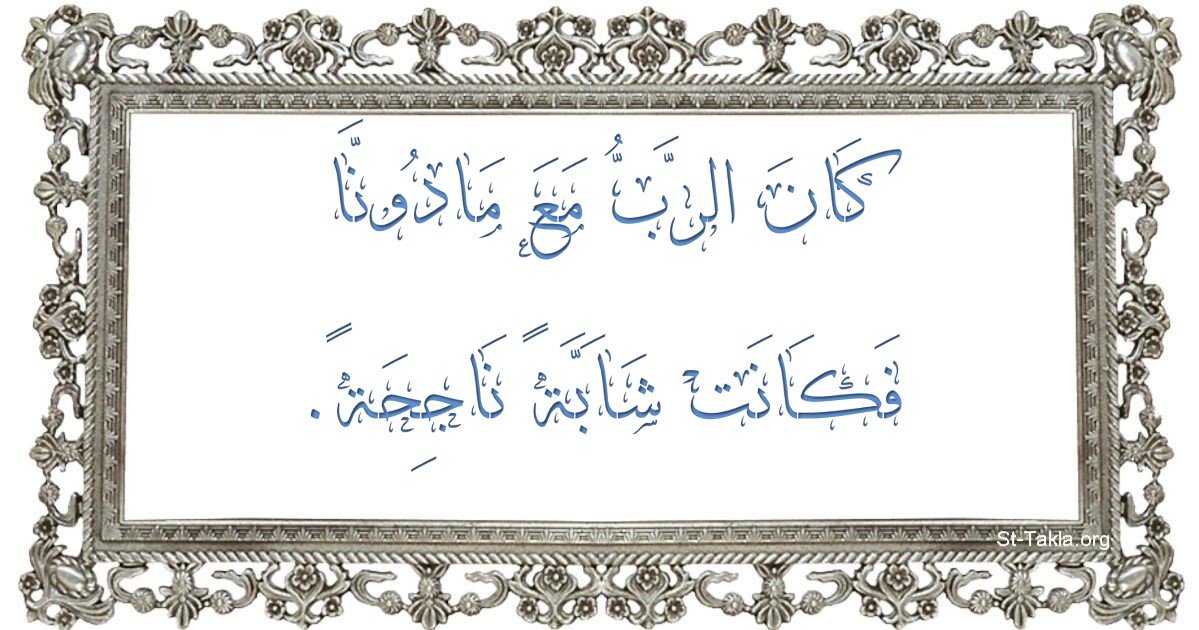 كَانَ الرَّبُّ مَعَ مَادُونَّا
فَكَانَتْ شَابَّةً نَاجِحَةً.
St-Takla.org